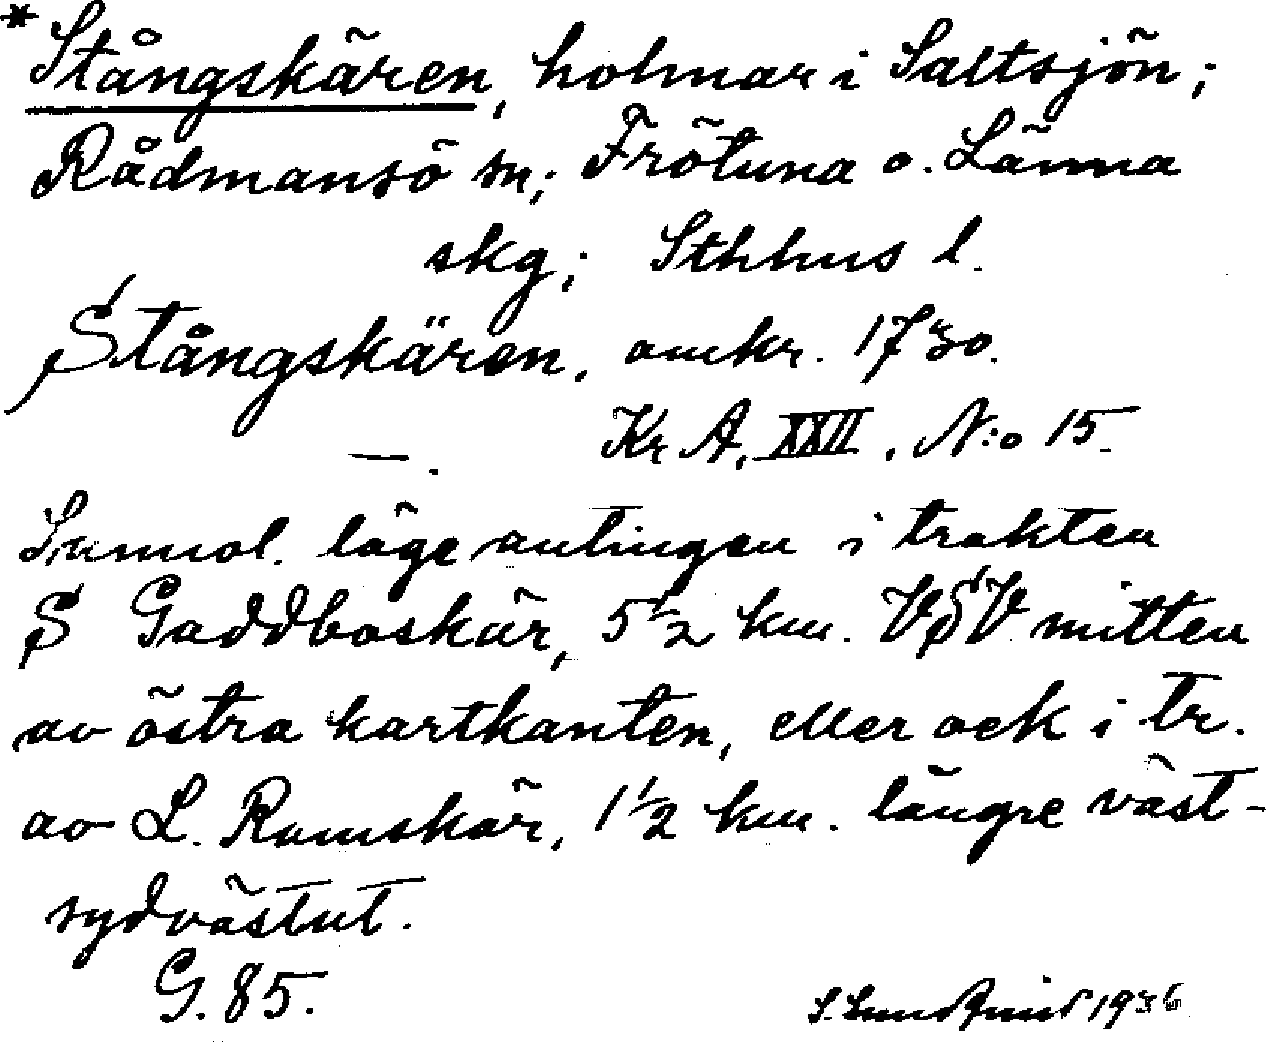 * Stångskären, holmar i Saltsjön;
Rådmansö sn; Frötuna o. Länna
skg; Sthlms l.
Stångskären, omkr. 1730.
Kr A, XXII, N:o 15.
—.
Sannol. läge antingen i trakten
S Gaddboskär, 5 1/2 km. VSV mitten
av östra kartkanten, eller ock i tr.
av L. Ramskär, 1 1/2 km. längre väst-
sydvästut.
G. 85.
S. Lundqvist 1936